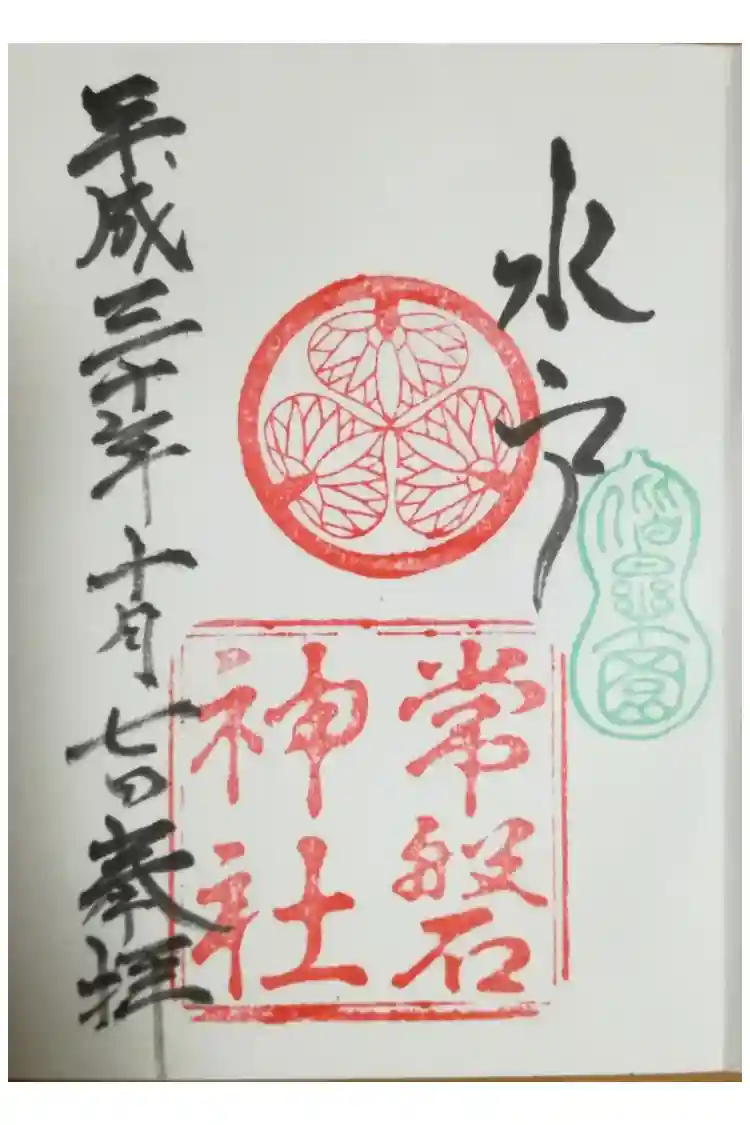 水戸
偕楽園
常磐
神社
平成三十年十月七日奉拝